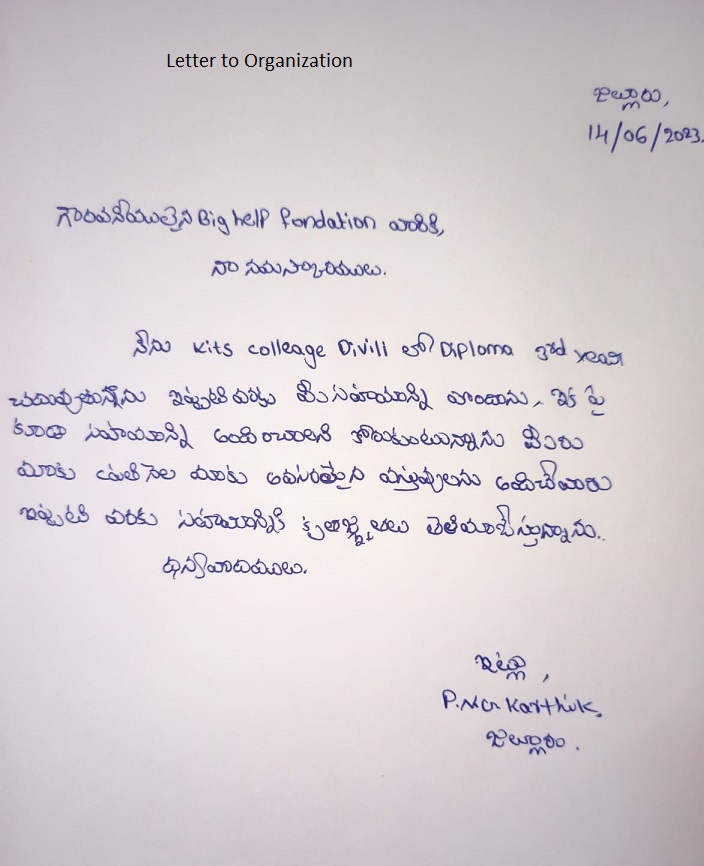 Letter to Organization
జల్లూరు,
14/06/2023.
గౌరవనీయులైన Big help fondation వారికి,
నా నమస్కారములు.
నేను Kits colleage Divili లో Diploma 3rd year
చదువుతున్నాను ఇప్పటి వరకు మీ సహాయాన్ని పొందాను. ఇక పై
కూడా సహాయాన్ని అందించాలని కోరుకుంటున్నాను మీరు
మాకు ప్రతి నెల మాకు అవసరమైన వస్తువులను అందిచేవారు
ఇప్పటి వరకు సహాయానికి కృతజ్ఞతలు తెలియాచేస్తున్నాను.
ధన్యవాదములు.
ఇట్లు,
Karthik.
జల్లూరు.